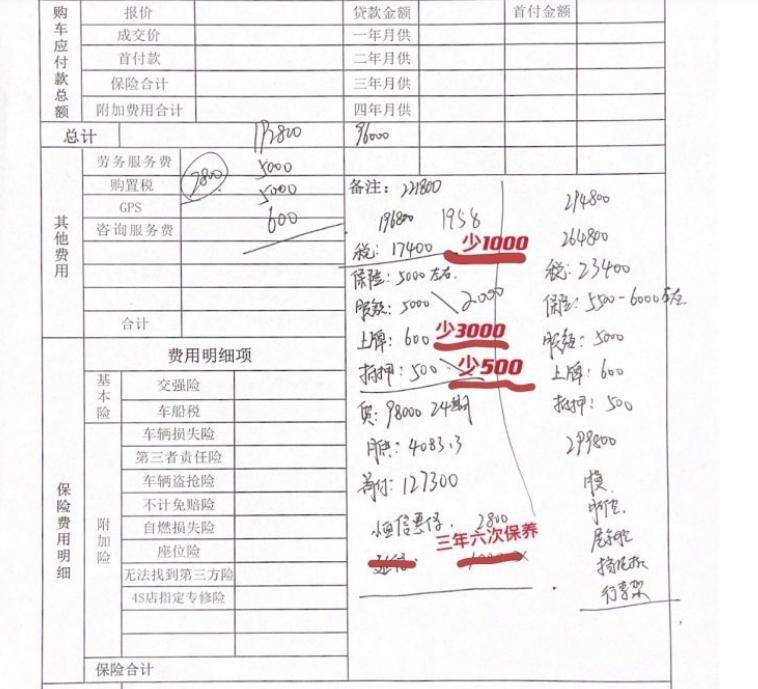 购车应付款总额
报价 贷款金额 首付金额
成交价 一年月供
首付款 二年月供
保险合计 三年月供
附加费用合计 四年月供
总计 96000
其他费用
劳务服务费 5000
购置税 2800 5000
GPS 600
咨询服务费
合计
备注: 221800
196800 1958
税: 17400 少1000
保险: 5000左右
服务: 5000 2000
上牌: 600 少3000
抵押: 500 少500
贷: 98000 24期
月供: 4083.3
首付: 127300
恒信惠保. 2800
三年六次保养
294800
264800
税: 23400
保险: 5500-6000左右
服务: 5000
上牌: 600
抵押: 500
299800
膜
尾
行李架
保险费用明细
费用明细项
基本险
交强险
车船税
附加险
车辆损失险
第三者责任险
车辆盗抢险
不计免赔险
自燃损失险
座位险
无法找到第三方险
4S店指定专修险
保险合计